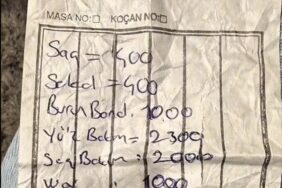 MASA NO:□ KOÇAN NO:□
Saç = 400
Sakal = 400
Burun Band. 1000
Yüz Bakım = 2300
Saç Bakım : 2000
: 1000